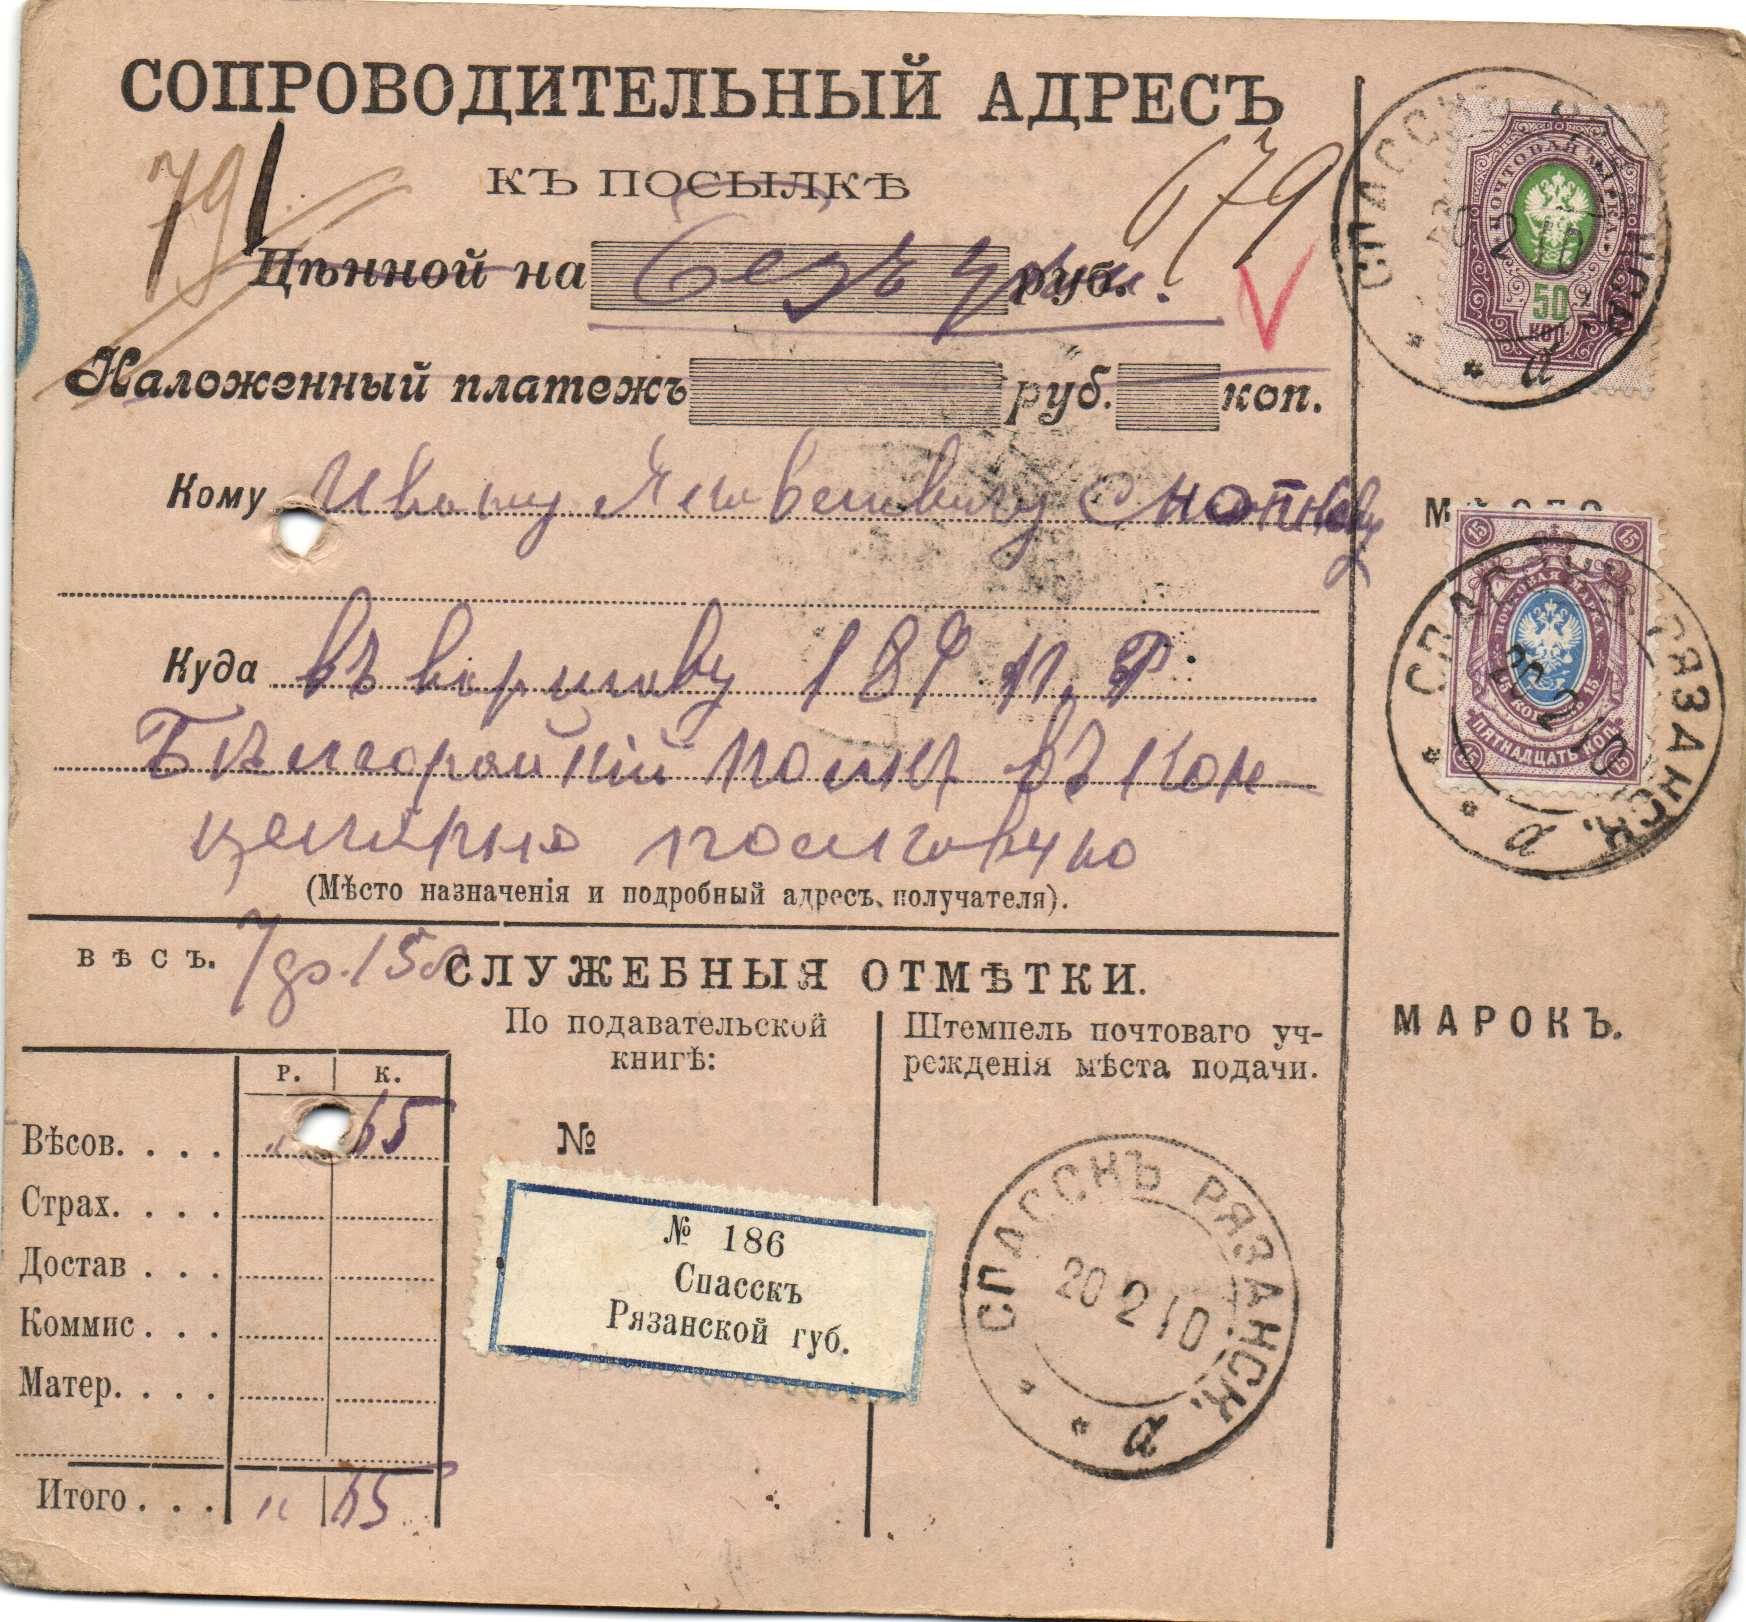 СОПРОВОДИТЕЛЬНЫЙ АДРЕСЪ
КЪ ПОСЫЛКѢ
791
679
Цѣнной на безъ цѣны руб.
Наложенный платежъ руб. коп.
Кому Ивану
Куда въ 189 п.
полкъ въ
(Мѣсто назначенія и подробный адресъ получателя).
ВѢСЪ. 7
СЛУЖЕБНЫЯ ОТМѢТКИ.
По подавательской
книгѣ:
№
Штемпель почтоваго уч-
режденія мѣста подачи.
Р. К.
Вѣсов. . . . „ 65
Страх. . . .
Достав . . .
Коммис . . .
Матер. . . .
Итого . . . „ 65
№ 186
Спасскъ
Рязанской губ.
СПАССКЪ РЯЗАНСК.
20 2 10
а
МѢСТО
МАРОКЪ.
ПОЧТОВАЯ МАРКА
50
КОП
СПАССКЪ РЯЗАНСК.
20 2 10
а
15 15
ПОЧТОВАЯ МАРКА
15 КОП. 15
ПЯТНАДЦАТЬ КОП.
15 15
СПАССКЪ РЯЗАНСК.
20 2 10
а